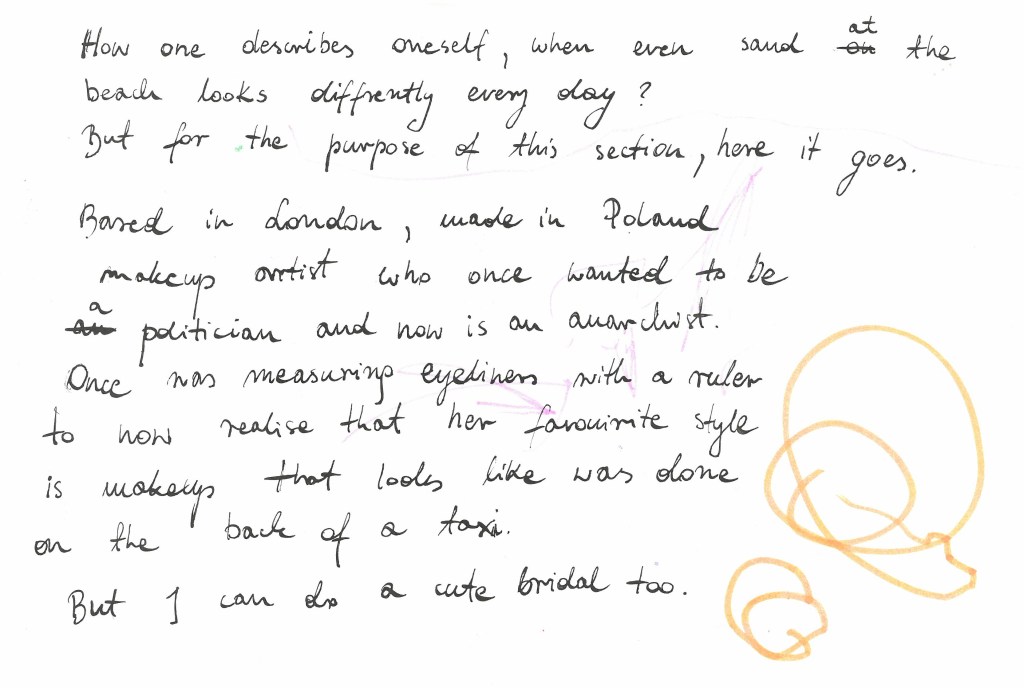 How one describes oneself, when even sand at the
beach looks diffrently every day?
But for the purpose of this section, here it goes.
Based in London, made in Poland
makeup artist who once wanted to be
a politician and now is an anarchist.
Once was measuring eyeliners with a ruler
to now realise that her favouirite style
is makeup that looks like was done
on the back of a taxi.
But I can do a cute bridal too.